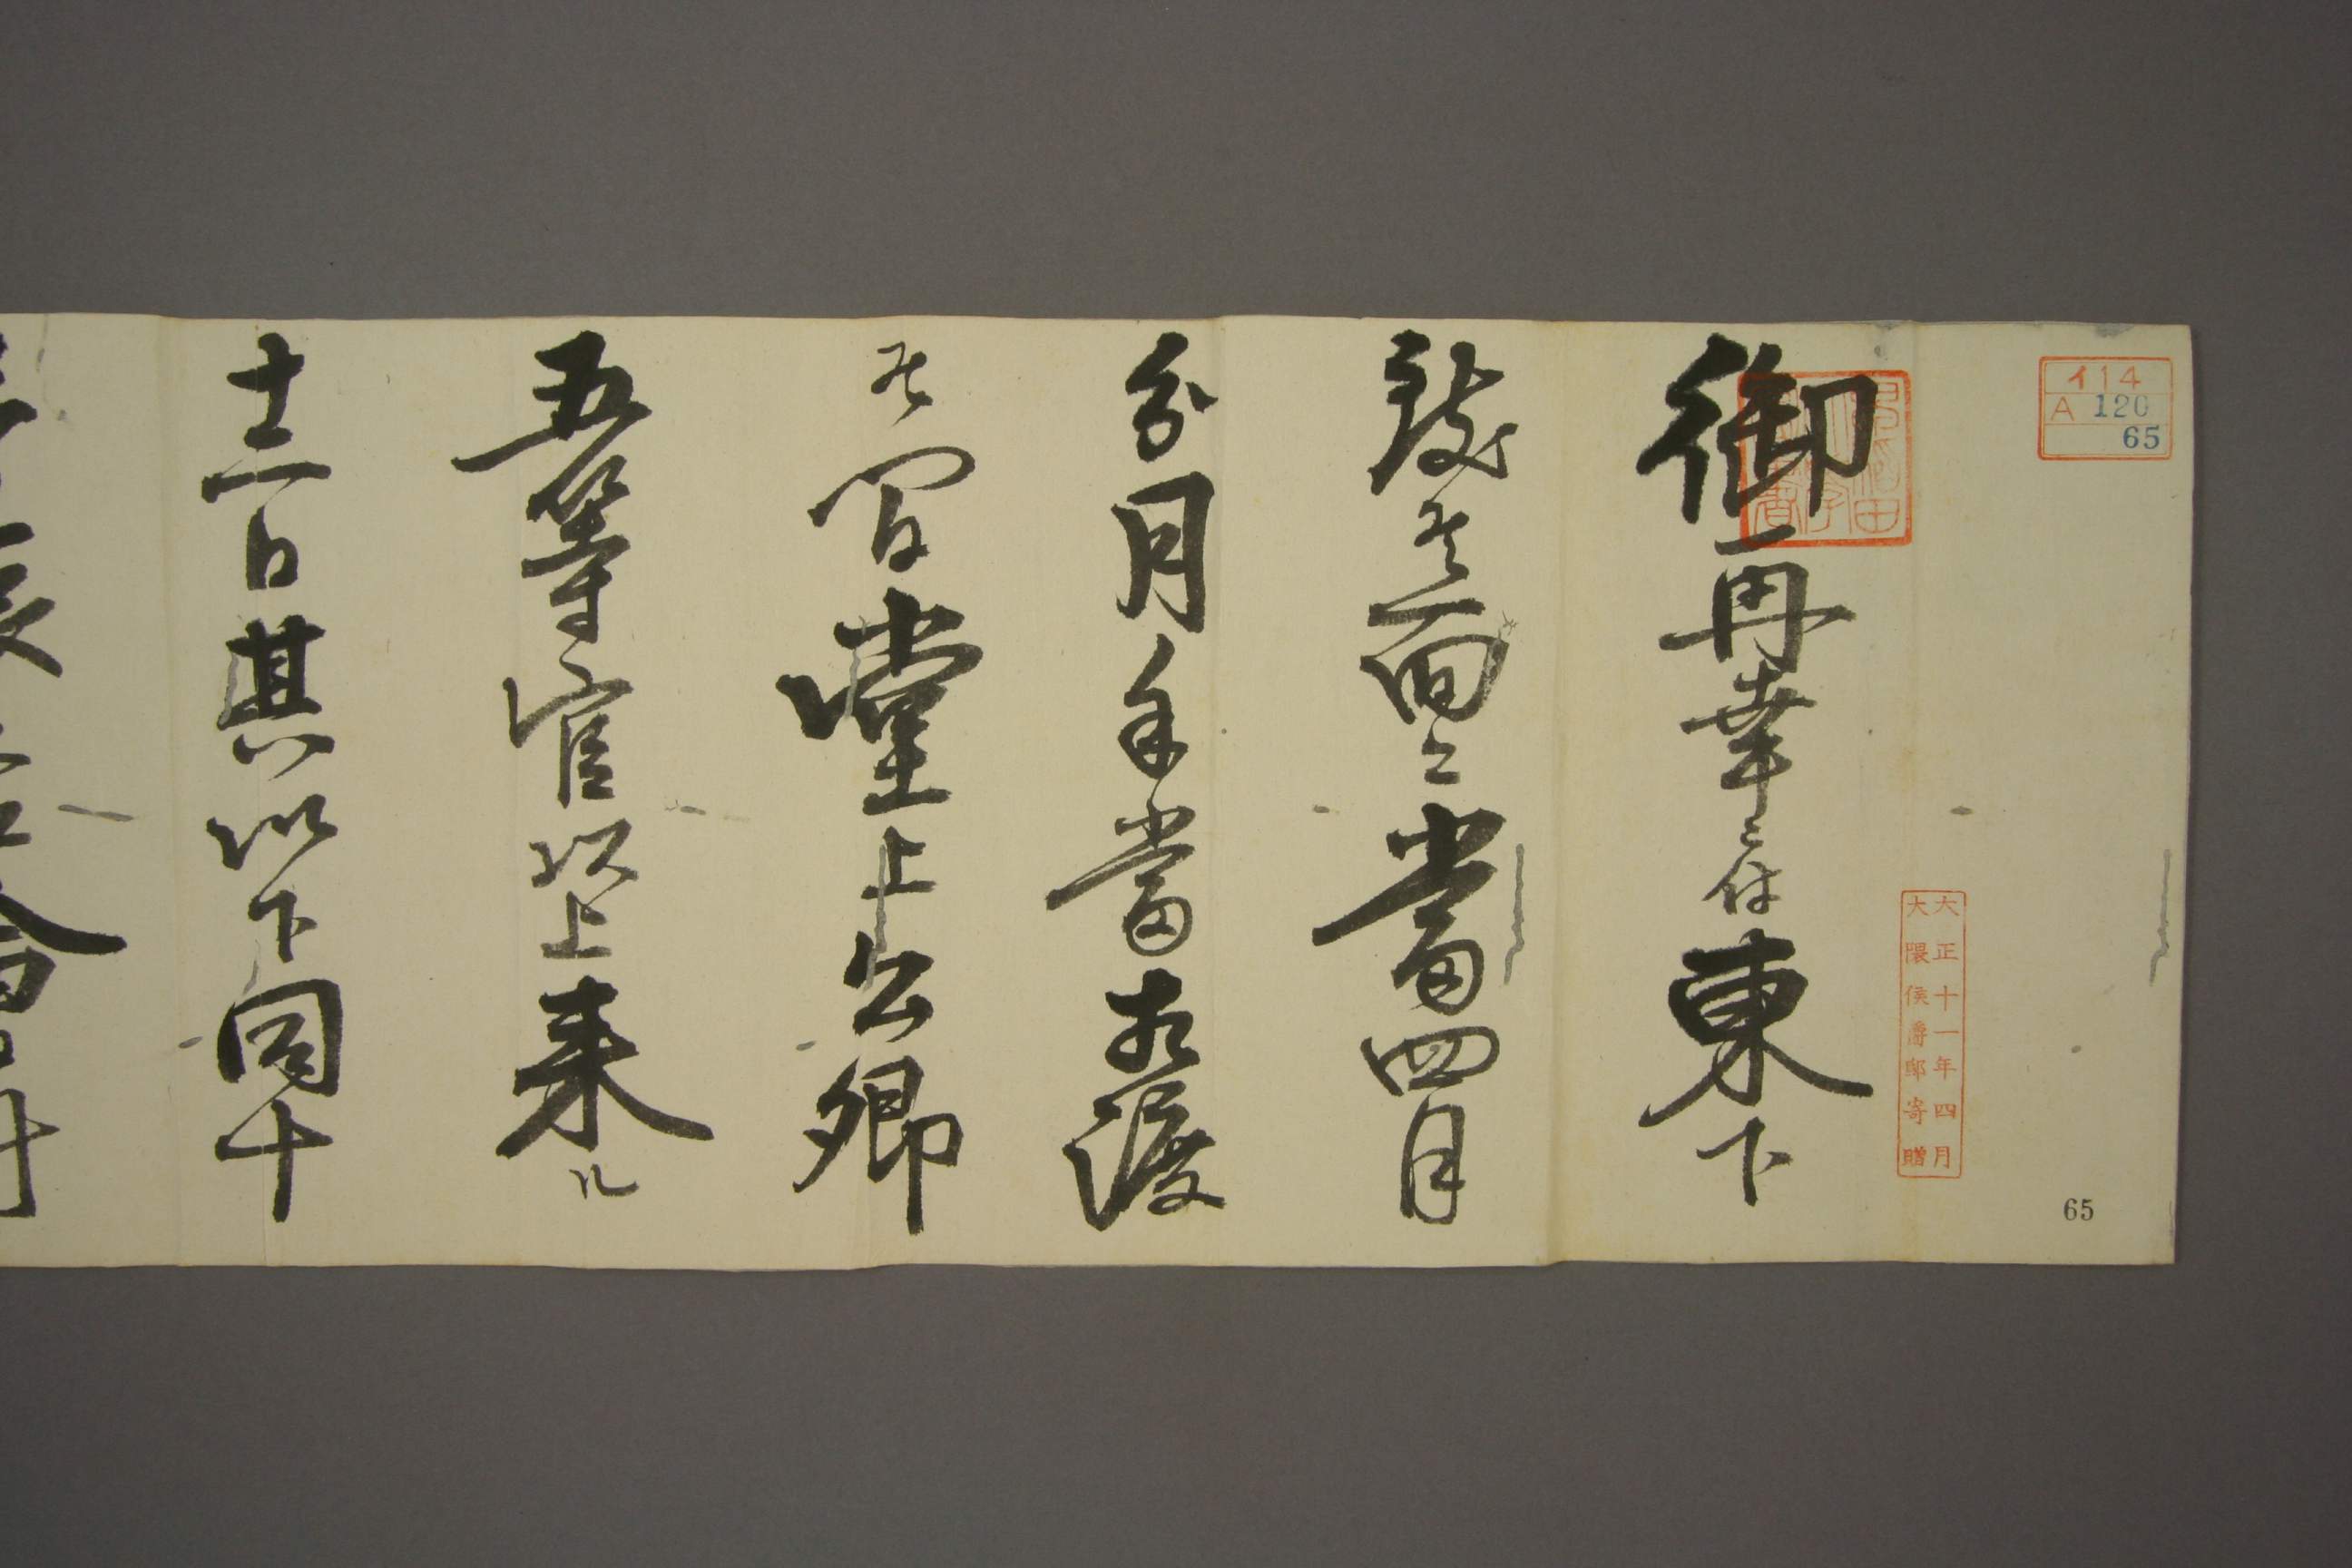 イ14
A 120
65
大正十一年四月
大隈侯爵邸寄贈
65
御再幸ニ付東下
致候面々ニ當四月
分月手當相渡
候間堂上公卿
五等官以上来ル
十二日其以下同十